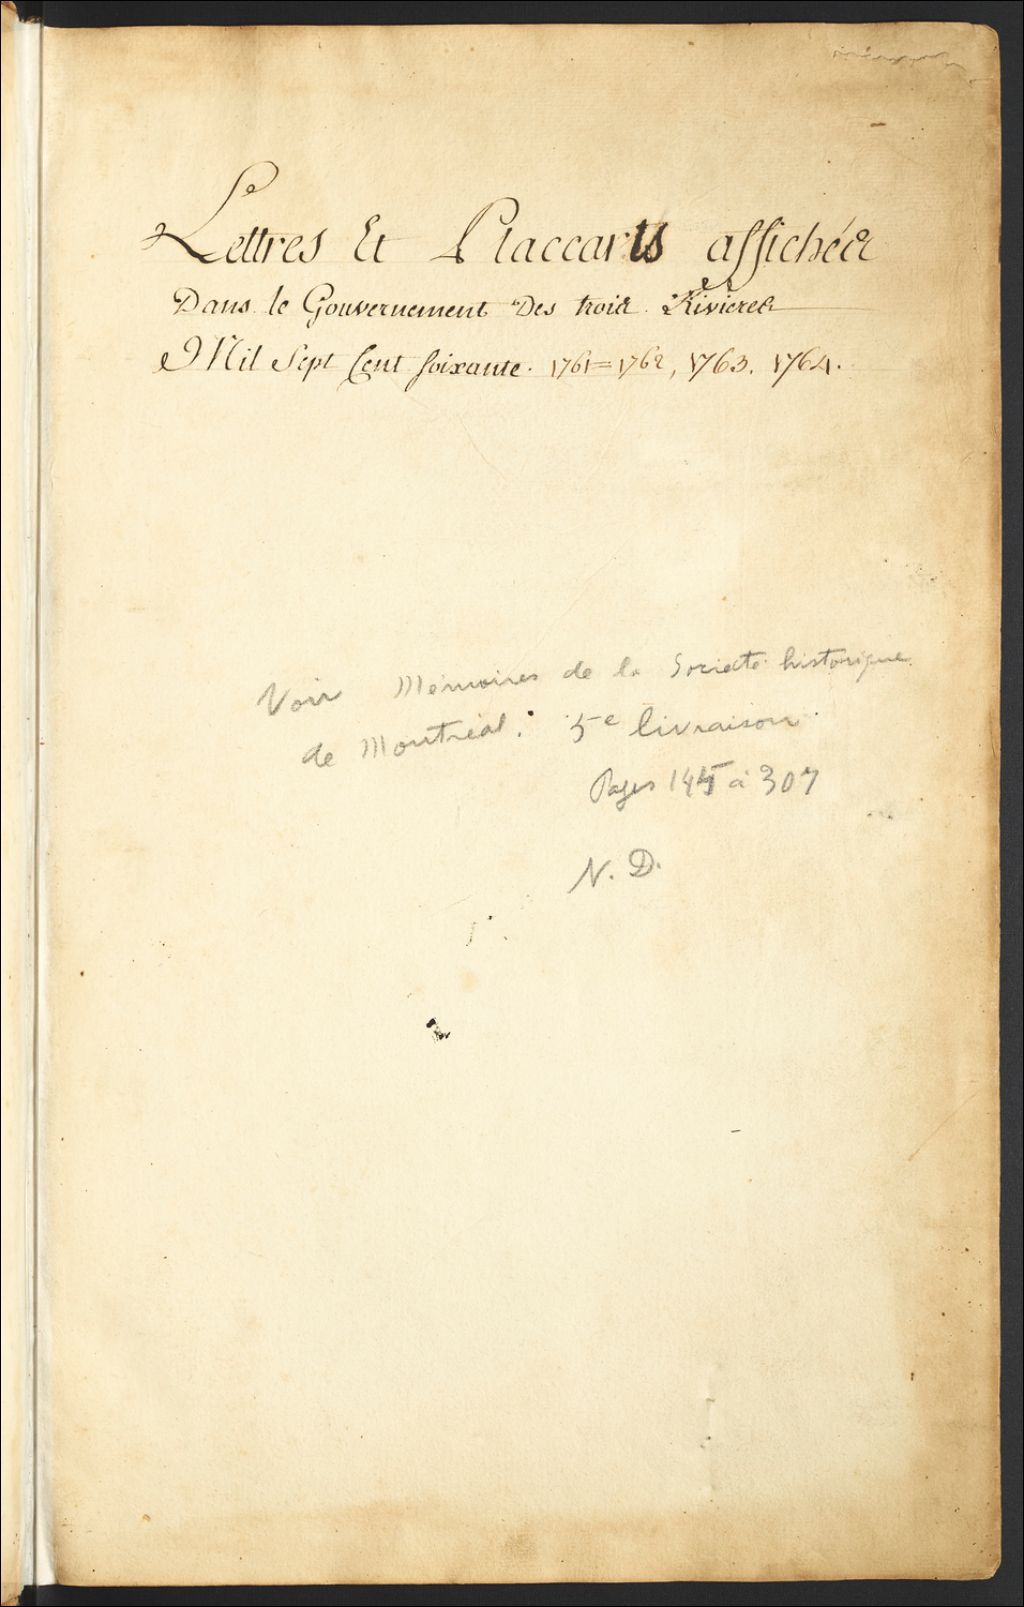 Lettres Et Placcarts affichées
Dans le Gouvernement Des trois Rivieres
Mil Sept Cent soixante. 1761=1762, 1763. 1764.
Voir Mémoires de la Société historique
de Montréal: 5e livraison.
Pages 145 à 307
N. D.